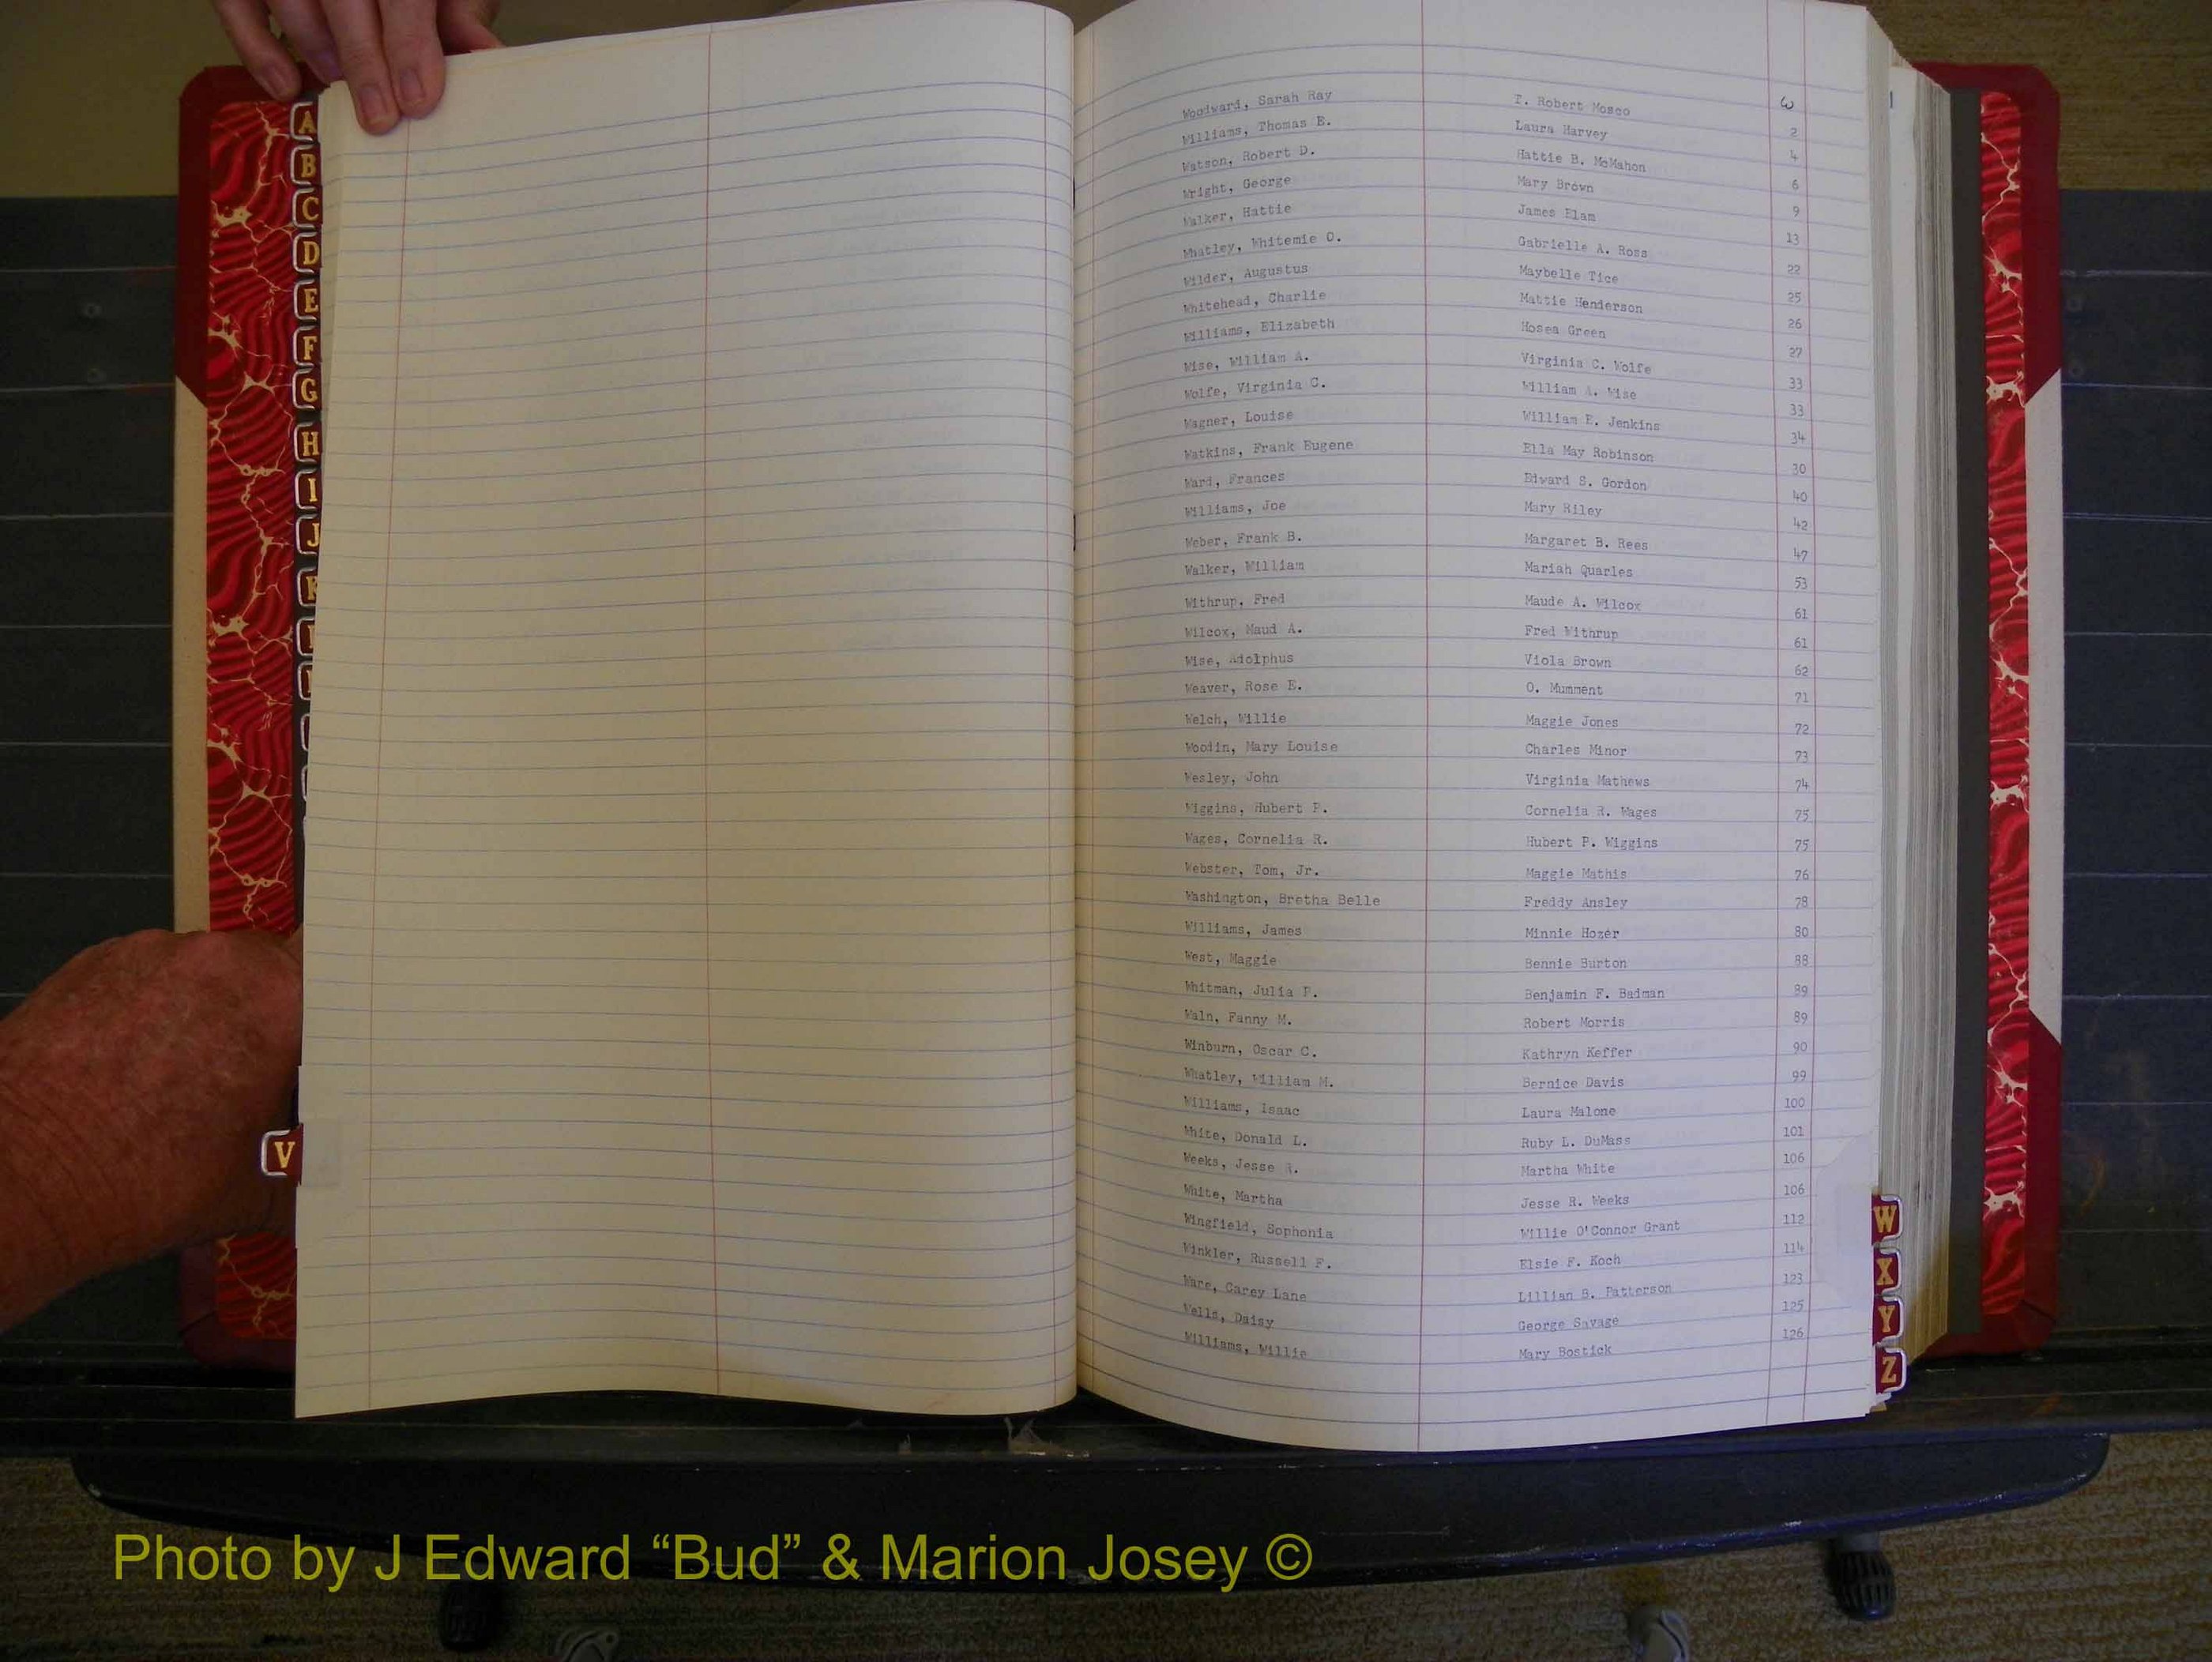 A
B
C
D
E
F
G
H
I
J
K
V
W
Woodward, Sarah Ray T. Robert Mosco 2
Williams, Thomas E. Laura Harvey 4
Watson, Robert D. Hattie B. McMahon 6
Wright, George Mary Brown 9
Walker, Hattie James Elam 13
Whatley, Whitemie O. Gabrielle A. Ross 22
Wilder, Augustus Maybelle Tice 25
Whitehead, Charlie Mattie Henderson 26
Williams, Elizabeth Hosea Green 27
Wise, William A. Virginia C. Wolfe 33
Wolfe, Virginia C. William A. Wise 33
Wagner, Louise William E. Jenkins 34
Watkins, Frank Eugene Ella May Robinson 30
Ward, Frances Edward S. Gordon 40
Williams, Joe Mary Riley 42
Weber, Frank B. Margaret B. Rees 47
Walker, William Mariah Quarles 53
Withrup, Fred Maude A. Wilcox 61
Wilcox, Maud A. Fred Withrup 61
Wise, Adolphus Viola Brown 62
Weaver, Rose E. O. Mumment 71
Welch, Willie Maggie Jones 72
Woodin, Mary Louise Charles Minor 73
Wesley, John Virginia Mathews 74
Wiggins, Hubert P. Cornelia R. Wages 75
Wages, Cornelia R. Hubert P. Wiggins 75
Webster, Tom, Jr. Maggie Mathis 76
Washington, Bretha Belle Freddy Ansley 78
Williams, James Minnie Hozer 80
West, Maggie Bennie Burton 88
Whitman, Julia P. Benjamin F. Badman 89
Waln, Fanny M. Robert Morris 89
Winburn, Oscar C. Kathryn Keffer 90
Whatley, William M. Bernice Davis 99
Williams, Isaac Laura Malone 100
White, Donald L. Ruby L. DuMass 101
Weeks, Jesse R. Martha White 106
White, Martha Jesse R. Weeks 106
Wingfield, Sophonia Willie O'Connor Grant 112
Winkler, Russell F. Elsie F. Koch 114
Ware, Carey Lane Lillian B. Patterson 123
Wells, Daisy George Savage 125
Williams, Willie Mary Bostick 126
W
X
Y
Z
Photo by J Edward “Bud” & Marion Josey ©